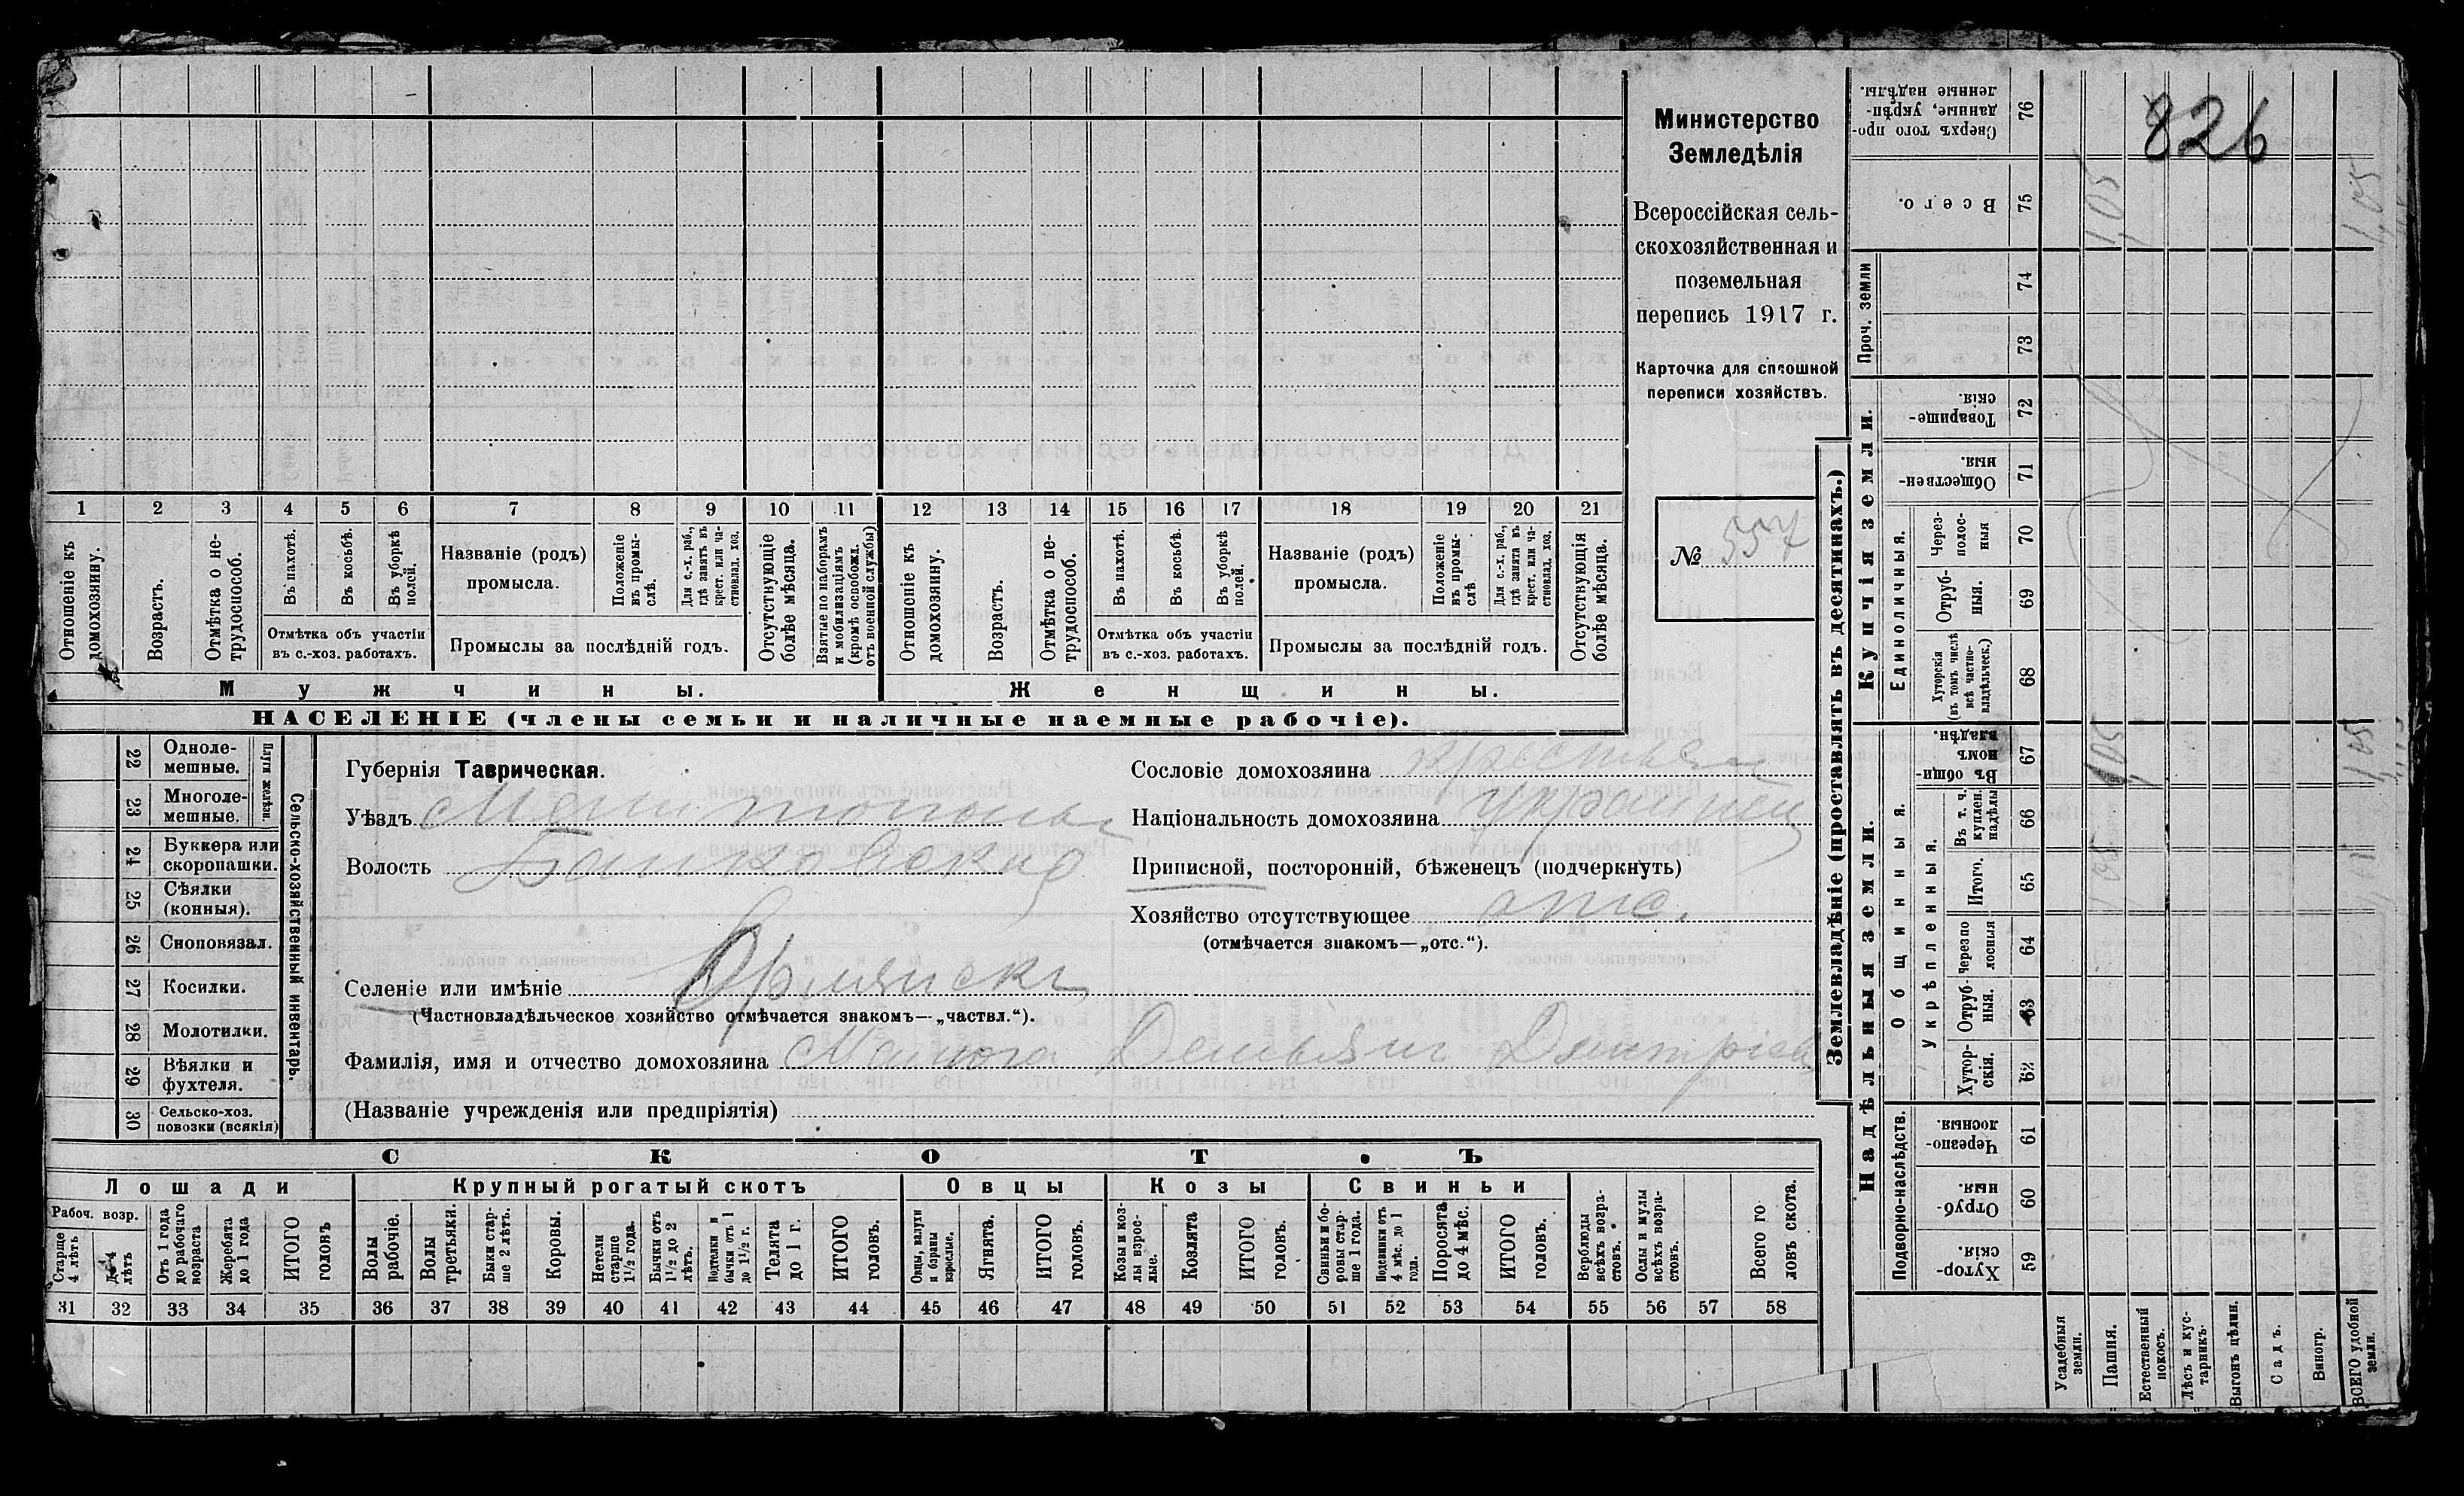 826
Министерство
Земледѣлія
Всероссійская сель-
скохозяйственная и
поземельная
перепись 1917 г.
Карточка для сплошной
переписи хозяйствъ.
№ 557
1 2 3 4 5 6 7 8 9 10 11 12 13 14 15 16 17 18 19 20 21
Отношеніе къ домохозяину.
Возрастъ.
Отмѣтка о не-трудоспособ.
Въ пахотѣ.
Въ косьбѣ.
Въ уборкѣ полей.
Отмѣтка объ участіи
въ с.-хоз. работахъ.
Названіе (родъ)
промысла.
Положеніе въ промы-слѣ.
Для с.-х. раб., гдѣ занятъ въ крест. или ча-стновлад. хоз.
Промыслы за послѣдній годъ.
Отсутствующіе болѣе мѣсяца.
Взятые по наборамъ и мобилизаціямъ (кромѣ освобожд. отъ военной службы)
Отношеніе къ домохозяину.
Возрастъ.
Отмѣтка о не-трудоспособ.
Въ пахотѣ.
Въ косьбѣ.
Въ уборкѣ полей.
Отмѣтка объ участіи
въ с.-хоз. работахъ.
Названіе (родъ)
промысла.
Положеніе въ промы-слѣ
Для с.-х. раб., гдѣ занята въ крест. или ча-стновлад. хоз.
Промыслы за послѣдній годъ.
Отсутствующія болѣе мѣсяца.
Мужчины.
Женщины.
НАСЕЛЕНІЕ (члены семьи и наличные наемные рабочіе).
22 Одноле-мешные.
23 Многоле-мешные.
Плуги желѣзн.
24 Буккера или скоропашки.
25 Сѣялки (конныя).
26 Сноповязал.
27 Косилки.
28 Молотилки.
29 Вѣялки и фухтеля.
30 Сельско-хоз. повозки (всякія)
Сельско-хозяйственный инвентарь.
Губернія Таврическая.
Уѣздъ
Волость
Селеніе или имѣніе
(Частновладѣльческое хозяйство отмѣчается знакомъ—„частвл.“).
Фамилія, имя и отчество домохозяина
(Названіе учрежденія или предпріятія)
Сословіе домохозяина
Національность домохозяина украинец
Приписной, посторонній, бѣженецъ (подчеркнуть)
Хозяйство отсутствующее отс.
(отмѣчается знакомъ—„отс.“).
СКОТЪ
Лошади
Крупный рогатый скотъ
Овцы
Козы
Свиньи
Рабоч. возр.
Старше 4 лѣтъ
До 4 лѣтъ
Отъ 1 года до рабочаго возраста
Жеребята до 1 года
ИТОГО головъ
Волы рабочіе.
Волы третьяки.
Быки стар-ше 2 лѣтъ.
Коровы.
Нетели старше 1½ года.
Бычки отъ 1½ до 2 лѣтъ.
Подтелки и бычки отъ 1 до 1½ г.
Телята до 1 г.
ИТОГО головъ.
Овцы, валухи и бараны взрослые.
Ягнята.
ИТОГО головъ.
Козы и коз-лы взрос-лые.
Козлята
ИТОГО головъ.
Свиньи и бо-ровы стар-ше 1 года.
Подсвинки отъ 4 мѣс. до 1 года.
Поросята до 4 мѣс.
ИТОГО головъ.
Верблюды всѣхъ возра-стовъ.
Ослы и мулы всѣхъ возра-стовъ.
Всего го-ловъ скота.
31 32 33 34 35 36 37 38 39 40 41 42 43 44 45 46 47 48 49 50 51 52 53 54 55 56 57 58
Землевладѣніе (проставлять въ десятинахъ.)
Надѣльныя земли.
Купчія земли.
Проч. земли
Подворно-наслѣдств.
Общинныя.
Укрѣпленныя.
Единоличныя.
76 Сверхъ того про-данные, укрѣп-ленные надѣлы.
75 Всего.
74
73
72 Товарище-скія.
71 Обществен-ныя.
70 Через-полос-ныя
69 Отруб-ныя.
68 Хуторскія (въ томъ числѣ всѣ частно-владѣльческ.)
67 Въ общи-номъ владѣн.
66 Въ т. ч. куплен. надѣлы
65 Итого.
64 черезпо лосныя
63 Отруб-ныя.
62 Хутор-скія.
61 Черезпо-лосныя.
60 Отруб-ныя.
59 Хутор-скія.
Усадебныя земли.
Пашня.
Естественный покосъ.
Лѣсъ и кус-тарникъ.
Выгонъ цѣлин.
Садъ.
Виногр.
ВСЕГО удобной земли.
1,05
1,05
1,05
1,05